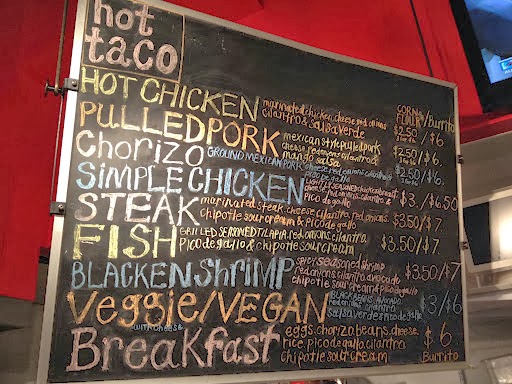 hot
taco
CORN & FLOUR/Burrito
HOT CHICKEN marinated chicken, cheese, red onions
cilantro & salsa verde $2.50/$6.
PULLED PORK mexican style pulled pork
cheese, red onions, cilantro &
mango salsa $2.50/$6.
Chorizo GROUND MEXICAN PORK $2.50/$6.
SIMPLE CHICKEN
pico de gallo $3./$6.50
STEAK marinated steak, cheese, cilantro, red onions,
chipotle sour cream & pico de gallo $3.50/$7.
FISH GRILLED SEASONED TILAPIA, red onions, cilantro
pico de gallo & chipotle sour cream $3.50/$7.
BLACKEN Shrimp spicy seasoned shrimp
red onions, cilantro, avocado
chipotle sour cream & pico de gallo $3.50/$7
Veggie/VEGAN BLACK BEANS, AVOCADO
red onions, cilantro
salsa verde & pico de gallo $3/$6
WITH CHEESE
Breakfast eggs, chorizo, beans, cheese,
rice, pico de gallo, cilantro
chipotle sour cream $6
Burrito